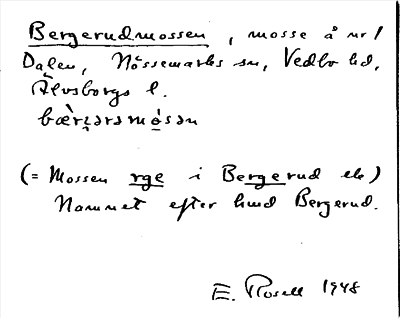 Bergerudmossen, mosse å nr 1
Dalen, Nössemarks sn, Vedbo hd,
Älvsborgs l.
(= Mossen rge i Bergerud etc)
Namnet efter hmd Bergerud.
E. Rosell 1948